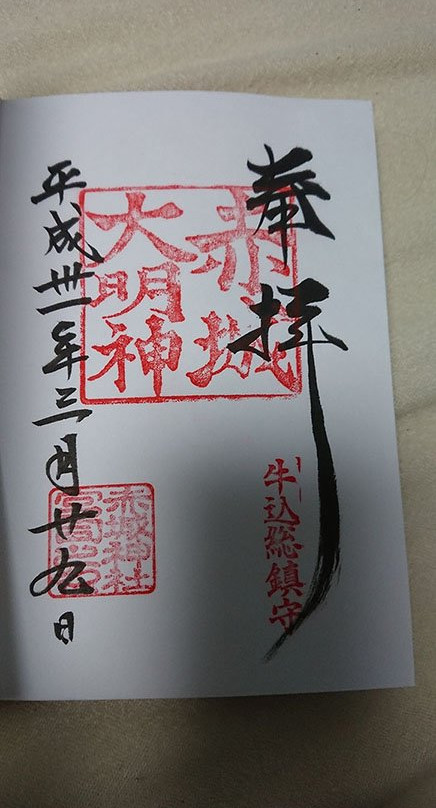 奉拝
赤城
大明神
牛込総鎮守
平成卅一年三月廿九日
赤城神社
宮司之印